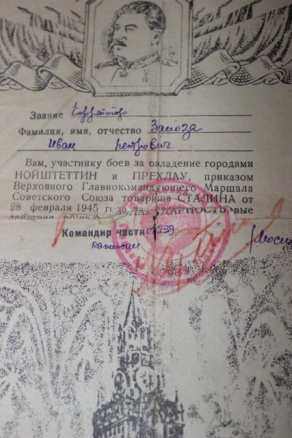 Звание Ефрейтор
Фамилия, имя, отчество Заноза
Иван Петрович
Вам, участнику боев за овладение городами
НОЙШТЕТТИН и ПРЕХЛАУ, приказом
Верховного Главнокомандующего Маршала
Советского Союза товарища СТАЛИНА от
28 февраля 1945 года
Командир части
капитан